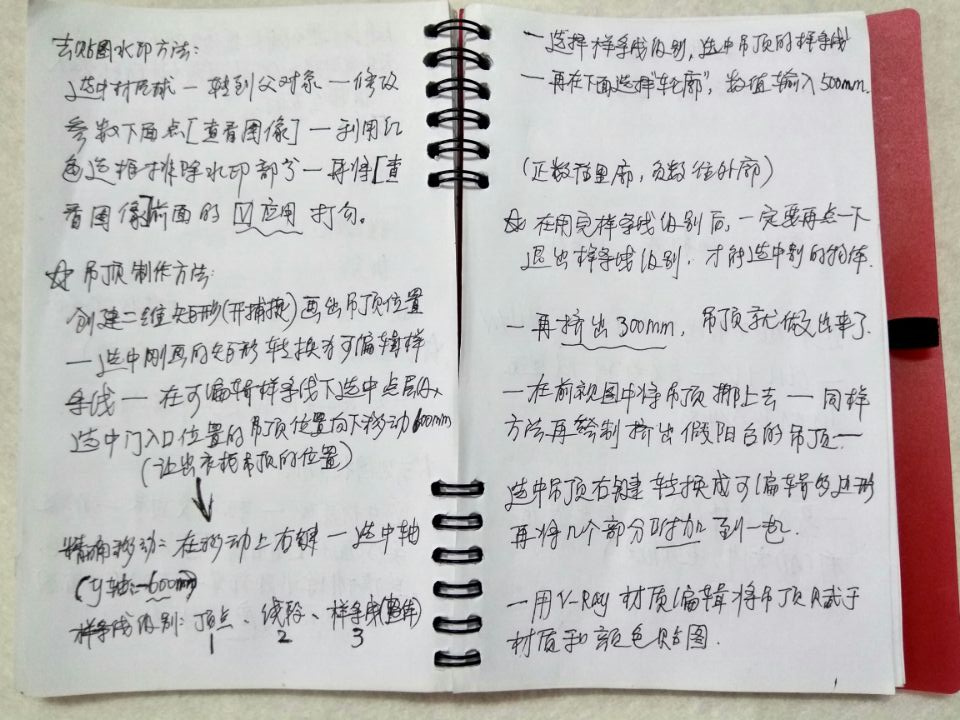 去贴图水印方法:
选中材质球—转到父对象—修改
参数下面点[查看图像]—利用红
色选框排除水印部分—再将[查
看图像]前面的 ☑应用 打勾。
☆ 吊顶制作方法:
创建二维矩形(开捕捉)画出吊顶位置
—选中刚画的矩形转换为可编辑样
条线—在可编辑样条线下选中点层级
选中门入口位置的吊顶位置向下移动600mm
(让出衣柜吊顶的位置)
精确移动:在移动上右键—选中轴
(y轴:-600mm)
样条线级别:顶点、线段、样条线(整体)
1 2 3
—选择样条线级别,选中吊顶的样条线
—再在下面选择"轮廓",数值输入500mm.
(正数往里廓,负数往外廓)
☆ 在用完样条线级别后,一定要再点一下
退出样条线级别,才能选中别的物体.
—再挤出300mm,吊顶就做出来了.
—在前视图中将吊顶挪上去—同样
方法再绘制挤出假阳台的吊顶—
选中吊顶右键转换成可编辑多边形
再将几个部分附加到一起.
—用V-Ray材质编辑将吊顶赋于
材质和颜色贴图.